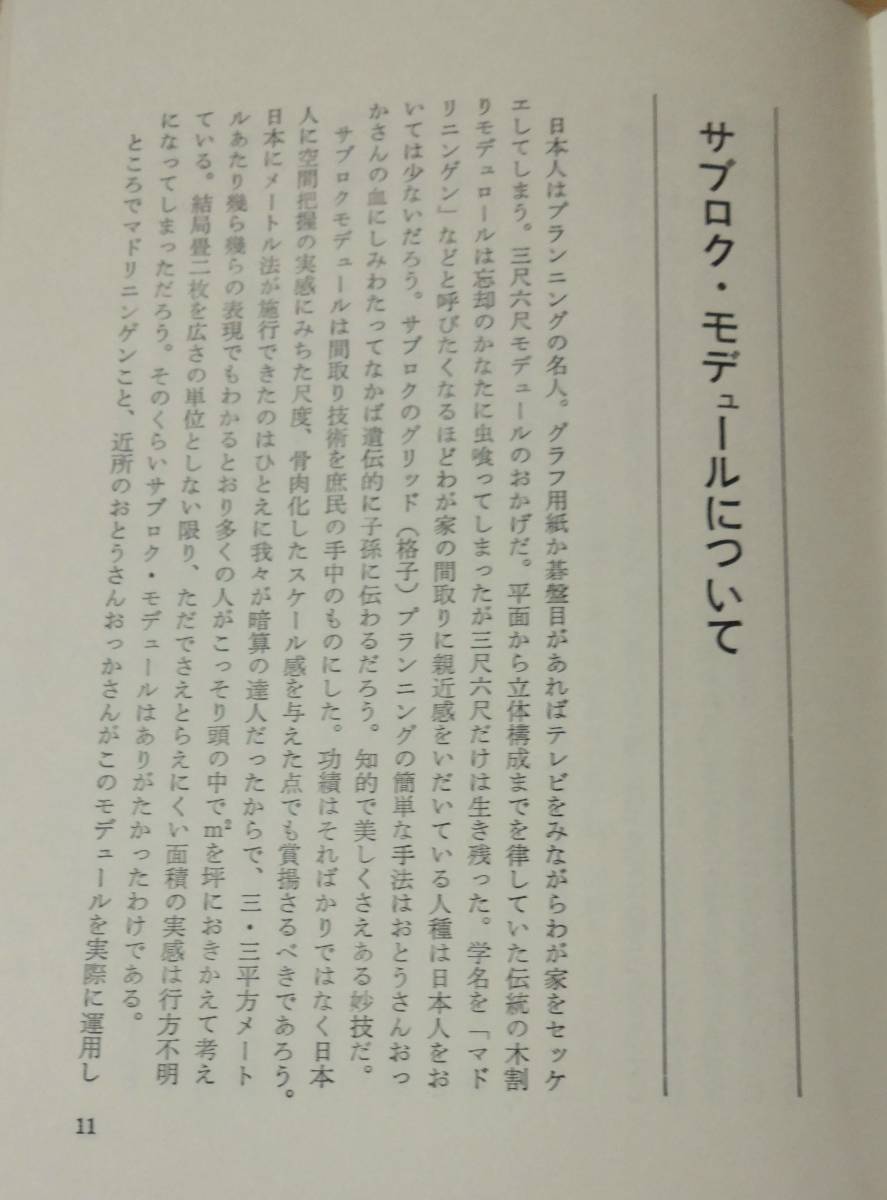 サブロク・モデュールについて
日本人はプランニングの名人。グラフ用紙か碁盤目があればテレビをみながらわが家をセッケ
エしてしまう。三尺六尺モデュールのおかげだ。平面から立体構成までを律していた伝統の木割
りモデュロールは忘却のかなたに虫喰ってしまったが三尺六尺だけは生き残った。学名を「マド
リニンゲン」などと呼びたくなるほどわが家の間取りに親近感をいだいている人種は日本人をお
いては少ないだろう。サブロクのグリッド（格子）プランニングの簡単な手法はおとうさんおっ
かさんの血にしみわたってなかば遺伝的に子孫に伝わるだろう。知的で美しくさえある妙技だ。
サブロクモデュールは間取り技術を庶民の手中のものにした。功績はそればかりではなく日本
人に空間把握の実感にみちた尺度、骨肉化したスケール感を与えた点でも賞揚さるべきであろう。
日本にメートル法が施行できたのはひとえに我々が暗算の達人だったからで、三・三平方メート
ルあたり幾ら幾らの表現でもわかるとおり多くの人がこっそり頭の中でm²を坪におきかえて考え
ている。結局畳二枚を広さの単位としない限り、ただでさえとらえにくい面積の実感は行方不明
になってしまっただろう。そのくらいサブロク・モデュールはありがたかったわけである。
ところでマドリニンゲンこと、近所のおとうさんおっかさんがこのモデュールを実際に運用し
11